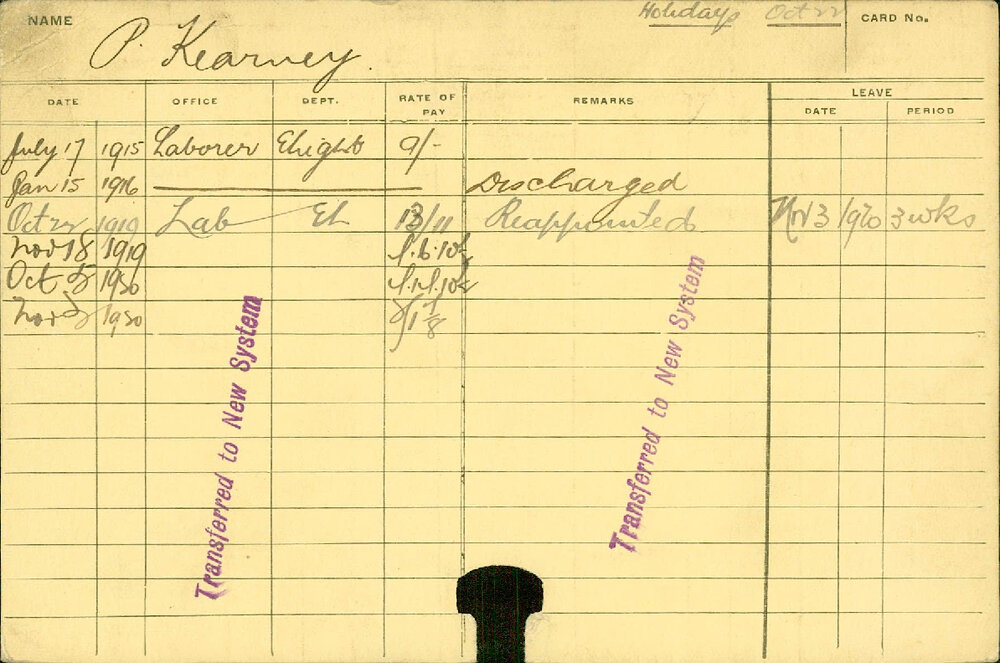 NAME P. Kearney. Holidays Oct 22 CARD No.
DATE OFFICE DEPT. RATE OF PAY REMARKS LEAVE
DATE PERIOD
July 17 1915 Laborer 9/-
Jan 15 1916 Discharged
Oct 22 1919 Lab El 13/11 Reappointed Nov 3 1920 3 wks
Nov 18 1919
Oct 1920
Nov 1920
Transferred to New System
Transferred to New System